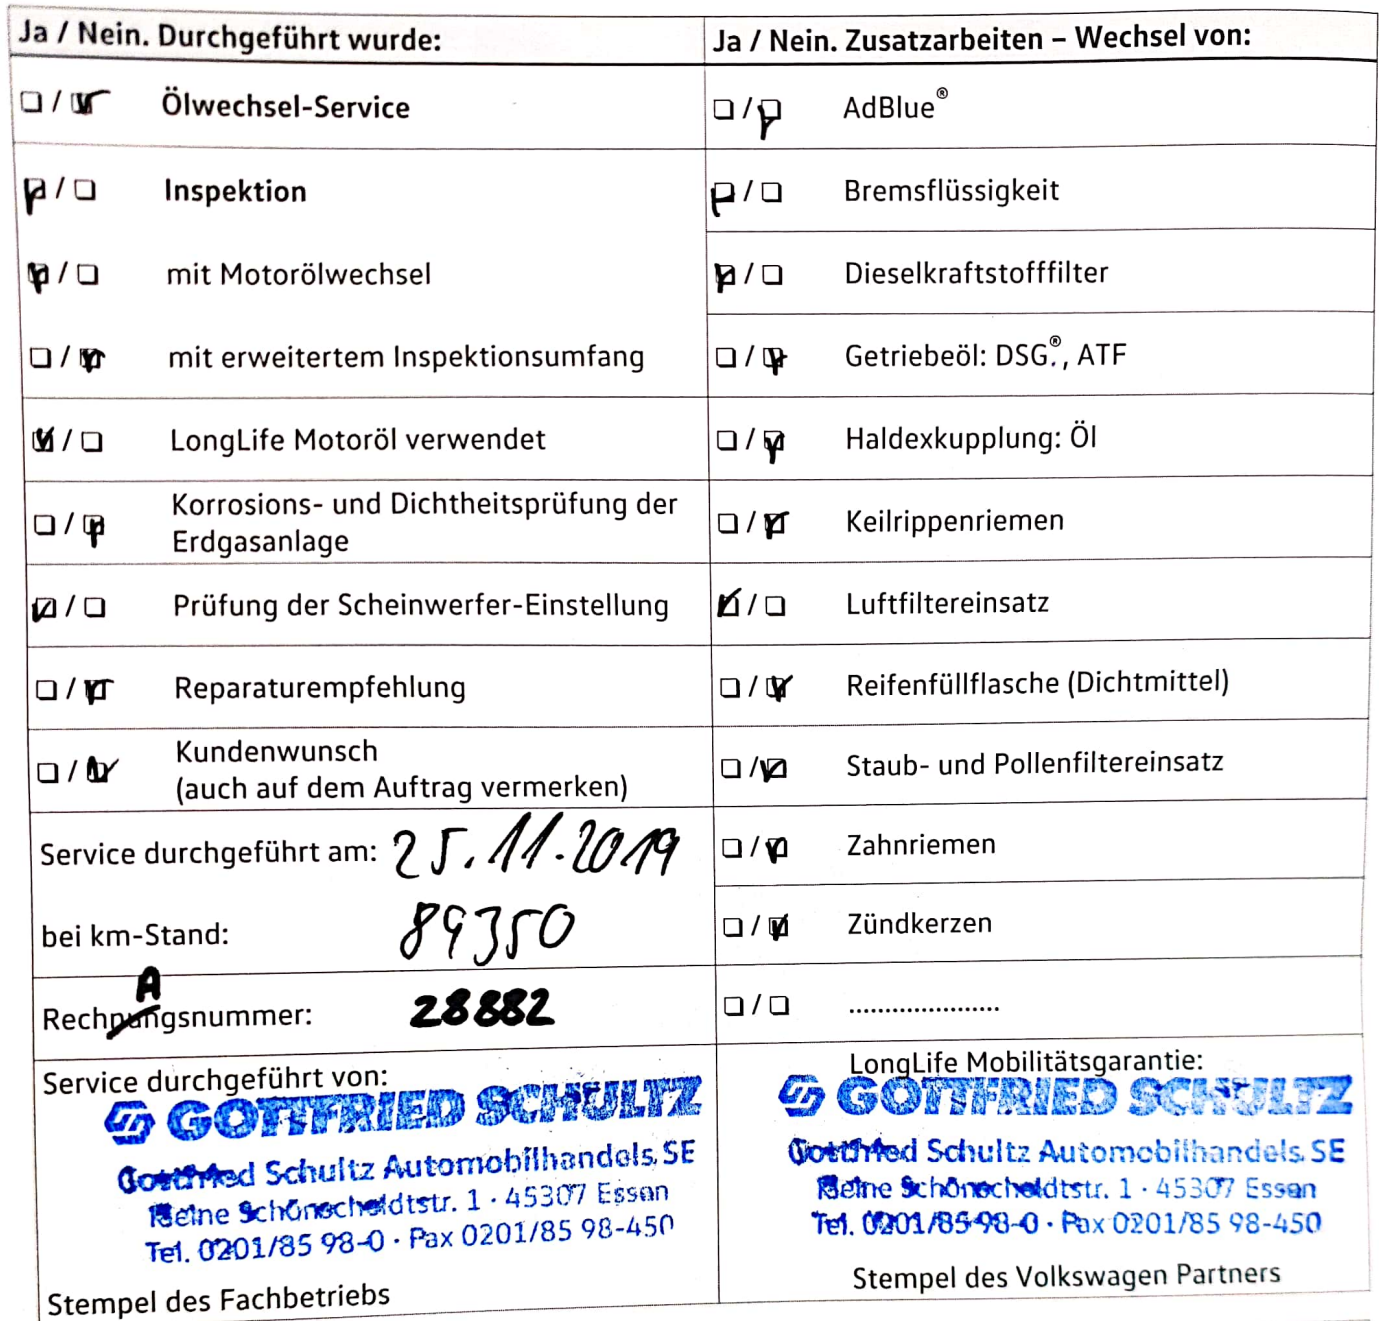 Ja / Nein. Durchgeführt wurde:
Ölwechsel-Service
Inspektion
mit Motorölwechsel
mit erweitertem Inspektionsumfang
LongLife Motoröl verwendet
Korrosions- und Dichtheitsprüfung der
Erdgasanlage
Prüfung der Scheinwerfer-Einstellung
Reparaturempfehlung
Kundenwunsch
(auch auf dem Auftrag vermerken)
Service durchgeführt am: 25.11.2019
bei km-Stand: 89350
A
Rechnungsnummer: 28882
Service durchgeführt von:
GOTTFRIED SCHULTZ
Gottfried Schultz Automobilhandels SE
Kleine Schönscheidtstr. 1 · 45307 Essen
Tel. 0201/85 98-0 · Fax 0201/85 98-450
Stempel des Fachbetriebs
Ja / Nein. Zusatzarbeiten – Wechsel von:
AdBlue®
Bremsflüssigkeit
Dieselkraftstofffilter
Getriebeöl: DSG®, ATF
Haldexkupplung: Öl
Keilrippenriemen
Luftfiltereinsatz
Reifenfüllflasche (Dichtmittel)
Staub- und Pollenfiltereinsatz
Zahnriemen
Zündkerzen
.....................
LongLife Mobilitätsgarantie:
GOTTFRIED SCHULTZ
Gottfried Schultz Automobilhandels SE
Kleine Schönscheidtstr. 1 · 45307 Essen
Tel. 0201/85 98-0 · Fax 0201/85 98-450
Stempel des Volkswagen Partners